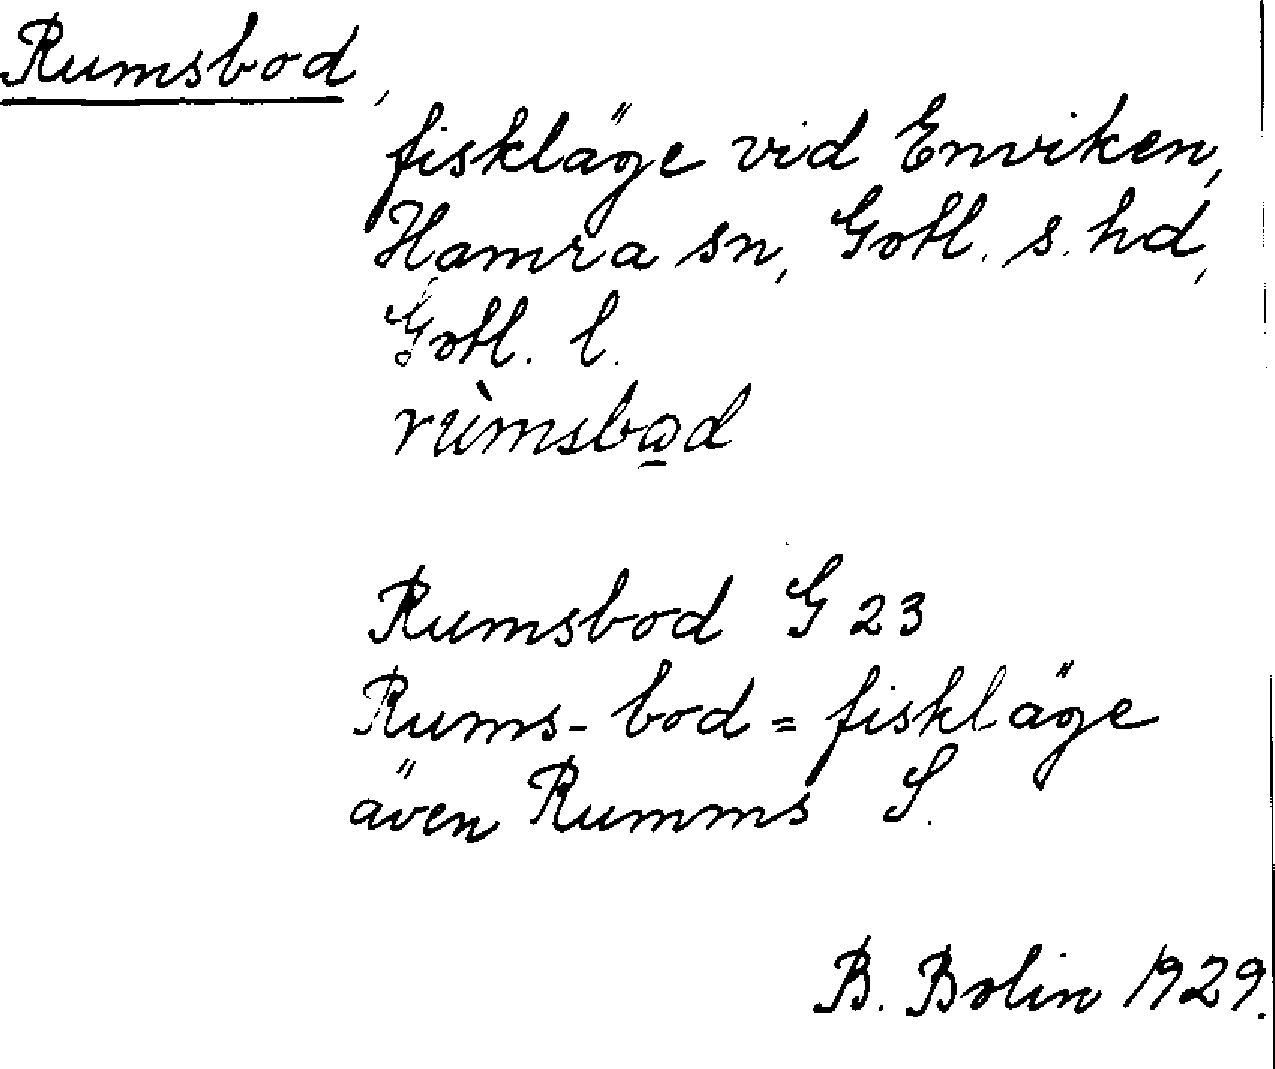 Rumsbod,
fiskläge vid Enviken,
Hamra sn, Gotl. s. hd,
Gotl. l.
rùmsbo̲d
Rumsbod G 23
Rums-bod = fiskläge
även Rumms S.
B. Bolin 1929.